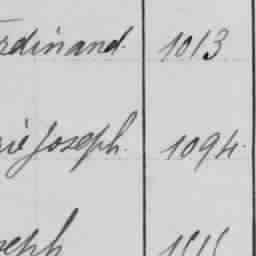 rdinand. 1013
rie Joseph. 1094.
seph